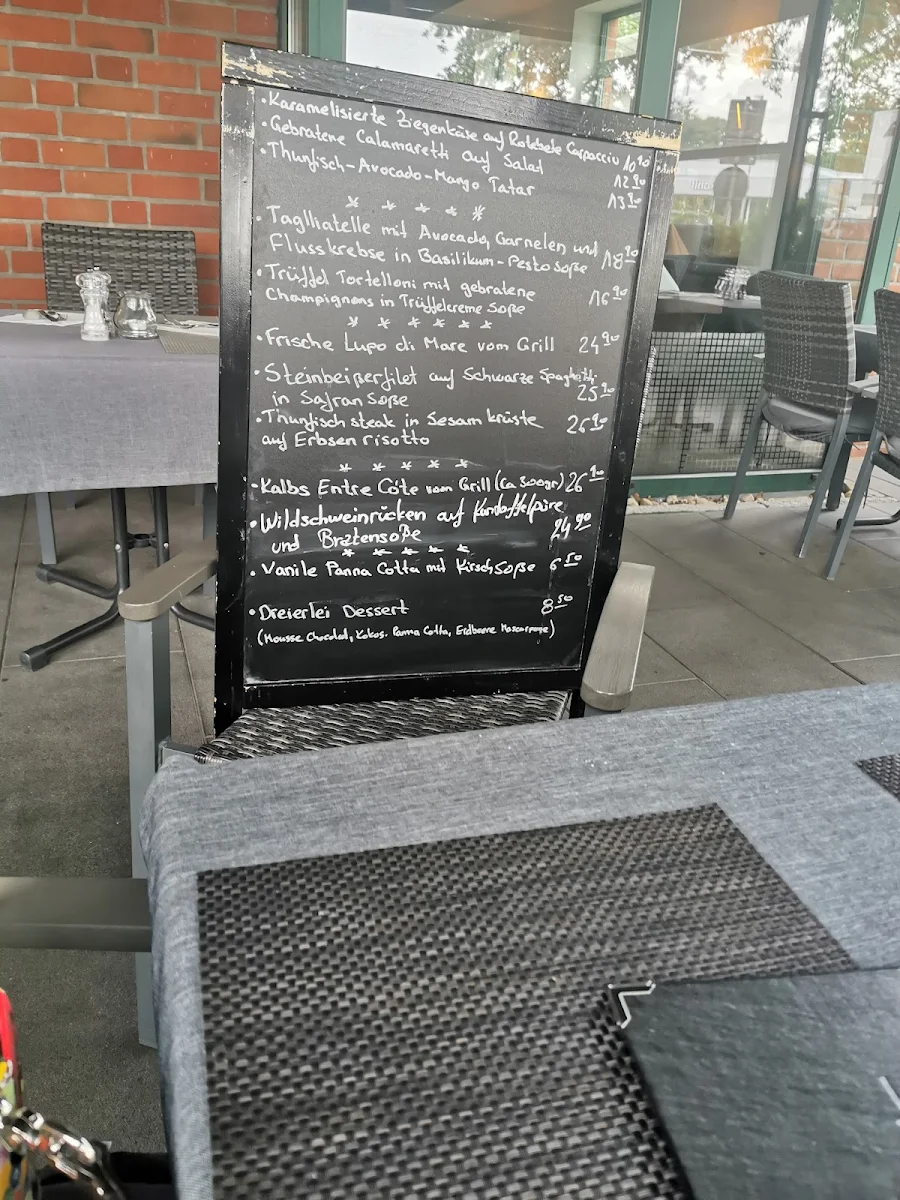 • Karamelisierte Ziegenkäse auf Rotebete Carpaccio 10 90
• Gebratene Calamaretti auf Salat 12 90
• Thunfisch-Avocado-Mango Tatar 13 90
* * * * *
• Taglliatelle mit Avocado, Garnelen und
Flusskrebse in Basilikum-Pesto Soße 18 90
• Trüffel Tortelloni mit gebratene
Champignons in Trüffelcreme Soße 16 90
* * * * *
• Frische Lupo di Mare vom Grill 24 90
• Steinbeißerfilet auf Schwarze Spaghetti
in Safran Soße 25 90
• Thunfisch steak in Sesam krüste 26 90
auf Erbsen risotto
* * * * *
• Kalbs Entre Côte vom Grill (ca 300gr) 26 90
• Wildschweinrücken auf Kartoffelpüre
und Bratensoße 24 90
* * * * *
• Vanile Panna Cotta mit Kirsch Soße 6 50
• Dreierlei Dessert 8 50
(Mousse Chocolat, Kokos. Panna Cotta, Erdbeere Mascarpone)